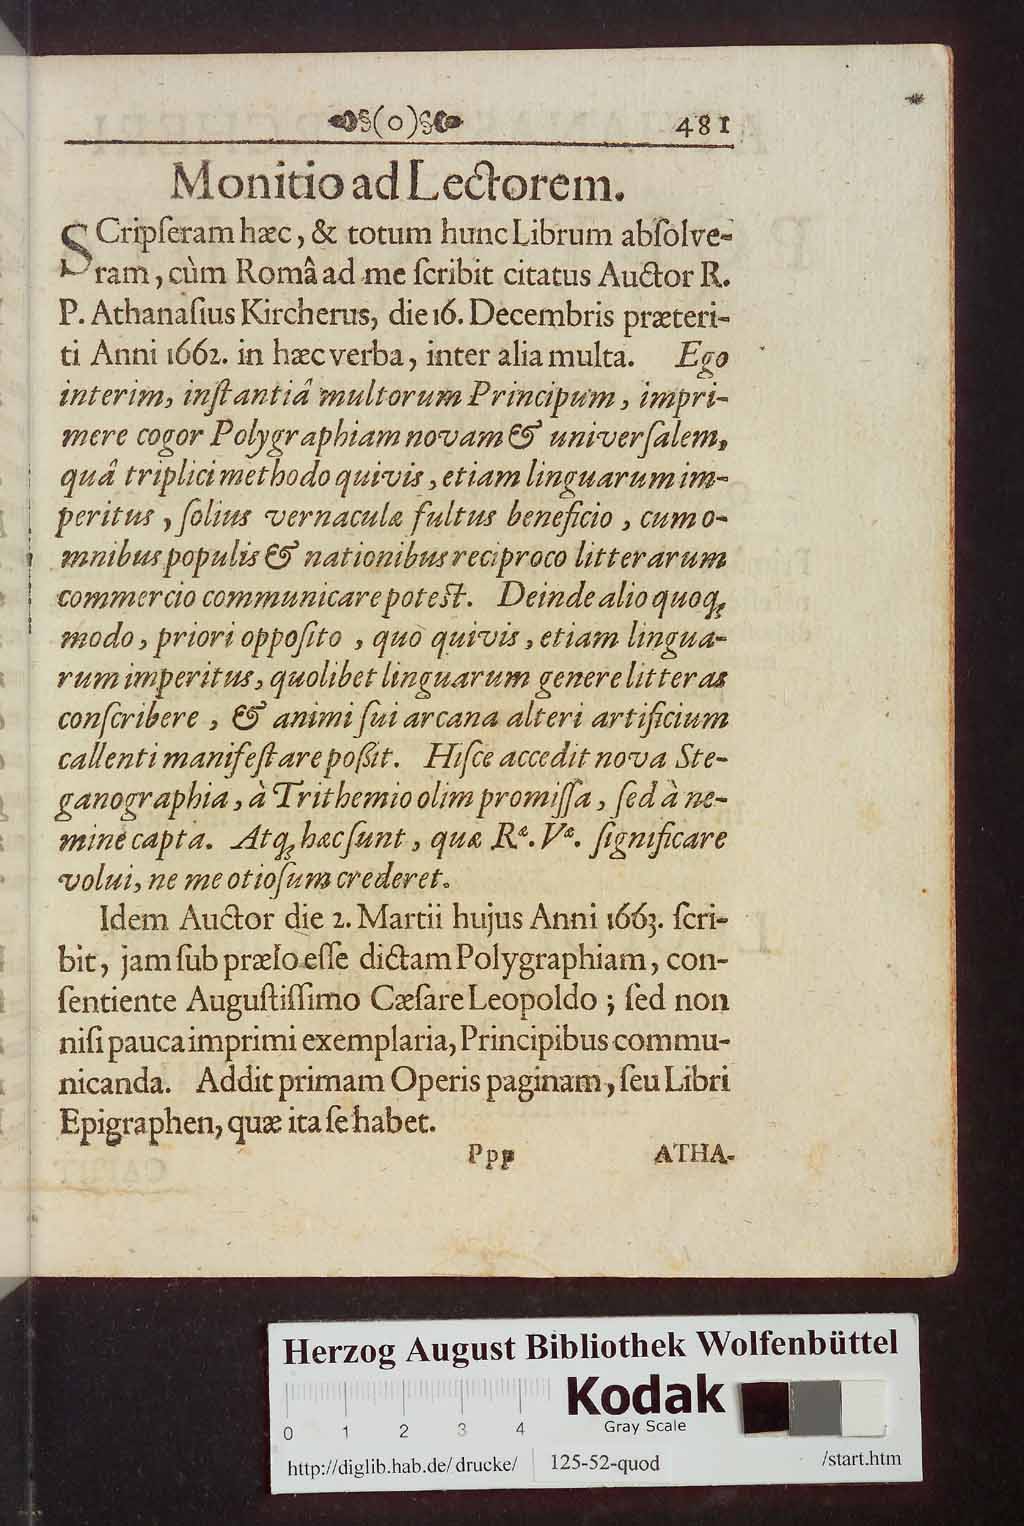 (o) 481
Monitio ad Lectorem.
SCripſeram hæc, & totum hunc Librum abſolve-
ram, cùm Româ ad me ſcribit citatus Auctor R.
P. Athanaſius Kircherus, die 16. Decembris præteri-
ti Anni 1662. in hæc verba, inter alia multa. Ego
interim, inſtantiâ multorum Principum, impri-
mere cogor Polygraphiam novam & univerſalem,
quâ triplici methodo quivis, etiam linguarum im-
peritus, ſolius vernaculæ fultus beneficio, cum o-
mnibus populis & nationibus reciproco litterarum
commercio communicare poteſt. Deinde alio quoq;
modo, priori oppoſito, quo quivis, etiam lingua-
rum imperitus, quolibet linguarum genere litteras
conſcribere, & animi ſui arcana alteri artificium
callenti manifeſtare poßit. Hiſce accedit nova Ste-
ganographia, à Trithemio olim promiſſa, ſed à ne-
mine capta. Atq; hæc ſunt, quæ Rᵃ. Vᵃ. ſignificare
volui, ne me otioſum crederet.
Idem Auctor die 2. Martii hujus Anni 1663. ſcri-
bit, jam ſub prælo eſſe dictam Polygraphiam, con-
ſentiente Auguſtiſſimo Cæſare Leopoldo; ſed non
niſi pauca imprimi exemplaria, Principibus commu-
nicanda. Addit primam Operis paginam, ſeu Libri
Epigraphen, quæ ita ſe habet.
Ppp ATHA-
Herzog August Bibliothek Wolfenbüttel
Kodak
Gray Scale
0 1 2 3 4
http://diglib.hab.de/drucke/ 125-52-quod /start.htm